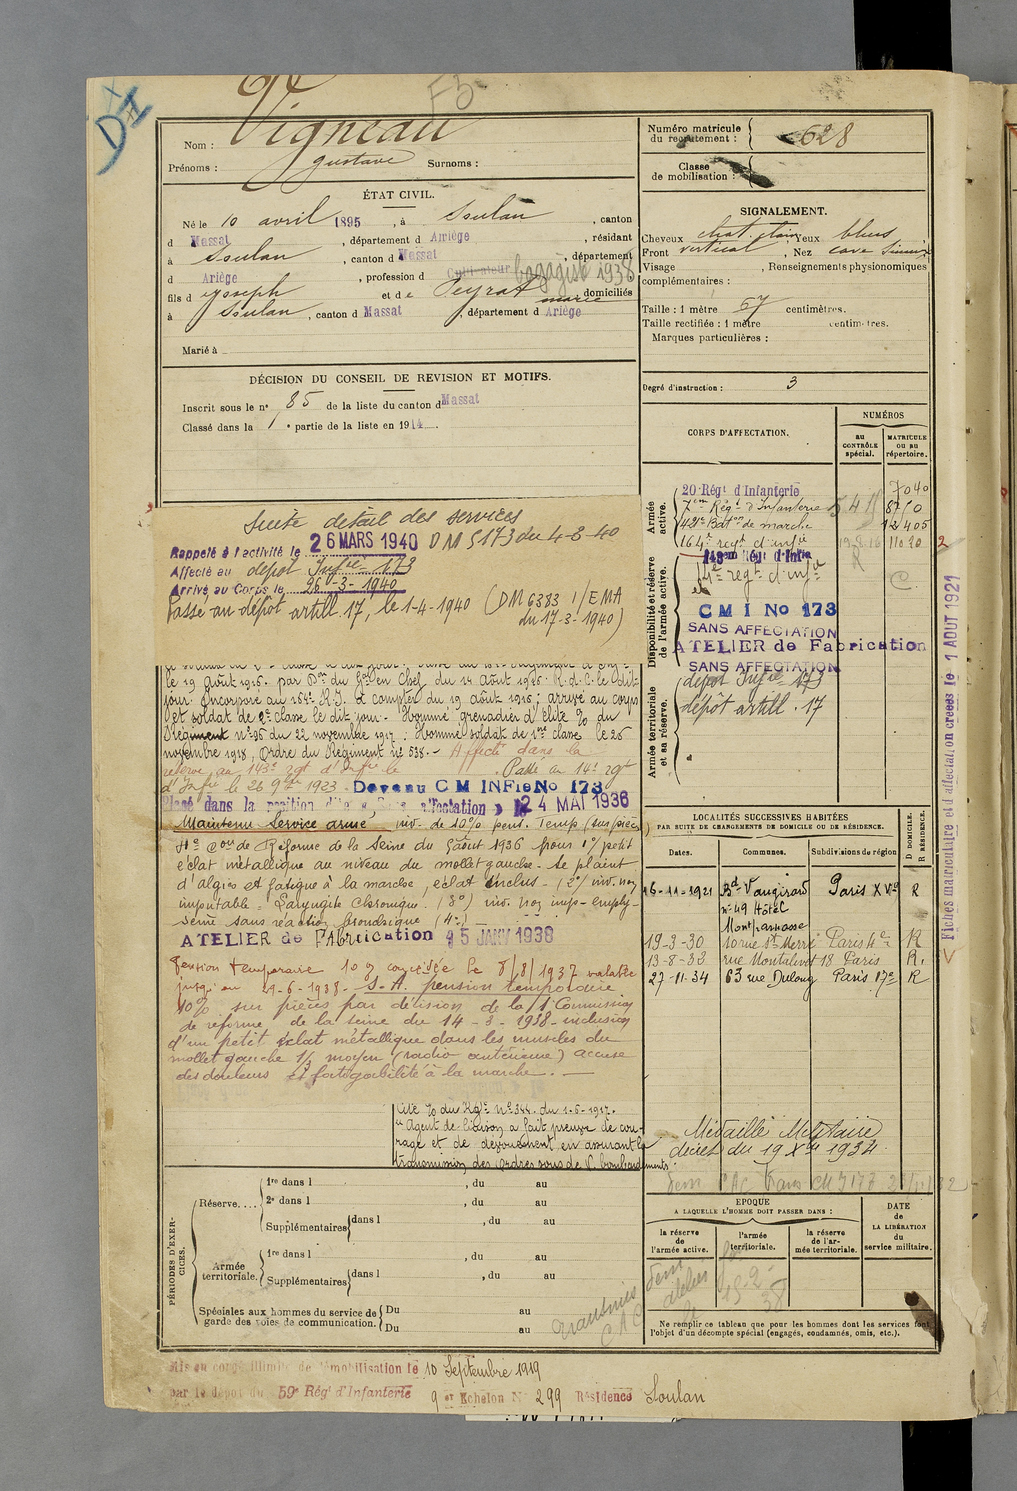 F3
D II
Nom : Vigneau
Prénoms : gustave Surnoms :
ÉTAT CIVIL.
Né le 10 avril 1895, à Soulan, canton
d Massat, département d Ariège, résidant
à Soulan, canton d Massat, département
d Ariège, profession d Cultivateur bagagiste 1938
fils d Joseph et de Peyrat marie domiciliés
à Soulan, canton d Massat, département d Ariège
Marié à
DÉCISION DU CONSEIL DE REVISION ET MOTIFS.
Inscrit sous le n° 85 de la liste du canton d Massat
Classé dans la 1e partie de la liste en 1914.
Suite détail des services
Rappelé à l'activité le 26 MARS 1940 DM 5173 du 4-8-40
Affecté au dépot Infie 173
Arrivé au Corps le 26-3-1940
Passé au dépôt artill. 17, le 1-4-1940 (DM 6383 1/EMA
du 17-3-1940)
le 19 août 1916. par Don du Gal en Chef du 14 août 1916. R.d.C. le dit
jour. Incorporé au 164e R.I. à compter du 19 août 1916; arrivé au corps
et soldat de 2e classe le dit jour. Nommé grenadier d'élite % du
Régiment n° 95 du 22 novembre 1917; Nommé soldat de 1ère classe le 26
novembre 1918, Ordre du Régiment n° 538. - Affecté dans la
réserve au 143e rgt d'Infie le . Passé au 14e rgt
d'Infie le 26 9bre 1923. Devenu C M INFie No 173
Placé dans la position dite "Sans affectation" le 24 MAI 1936
Maintenu Service armé, inv. de 10% pens. Temp (sur pièces)
C'on de Réforme de la Seine du 5 août 1936 pour 1°/ petit
éclat métallique au niveau du mollet gauche. Se plaint
d'algies et fatigue à la marche, éclat inclus - (2°/ inv. non
imputable - Laryngite Chronique. (3°) inv. non imp - emphy-
sème sans réaction bronchique (4°)
ATELIER de FAbrication 15 JANV 1938
Pension temporaire 10% concédée le 8/8/1937 valable
jusqu'au 9-6-1938. S.A. pension temporaire
10% sur pièces par décision de la 1 Commission
de réforme de la Seine du 14-3-1938 - inclusion
d'un petit éclat métallique dans les muscles du
mollet gauche 1/3 moyen (radio antérieure) accuse
des douleurs et fatigabilité à la marche. —
Cité % du Rgt n° 344. du 1-6-1917.
"Agent de liaison a fait preuve de cou-
rage et de dévouement en assurant la
transmission des ordres sous de V. bombardements."
PÉRIODES D'EXERCICES.
Réserve....
1re dans l , du au
2e dans l , du au
Supplémentaires dans l , du au
Armée territoriale.
1re dans l , du au
Supplémentaires dans l , du au
Spéciales aux hommes du service de garde des voies de communication.
Du au
Du au
Mis en congé illimité de démobilisation le 10 Septembre 1919
par le dépot du 59e Régt d'Infanterie
9 er Echelon N° 299 Résidence Soulan
Numéro matricule du recrutement : 628
Classe de mobilisation :
SIGNALEMENT.
Cheveux chat. clair, Yeux bleus
Front vertical, Nez cave Sinueux
Visage , Renseignements physionomiques
complémentaires :
Taille : 1 mètre 57 centimètres.
Taille rectifiée : 1 mètre centimètres.
Marques particulières :
Degré d'instruction : 3
CORPS D'AFFECTATION.
NUMÉROS
au CONTRÔLE spécial.
MATRICULE ou au répertoire.
Armée active.
20 Régt d'Infanterie 7040
7em Régt d'Infanterie 8750
42e Bat on de marche 12405
164e regt d'infie 11020
Disponibilité et réserve de l'armée active.
143em Régt d'Infie
14e regt d'infie
C M I No 173
SANS AFFECTATION
ATELIER de Fabrication
SANS AFFECTATION
Armée territoriale et sa réserve.
dépot Infie 173
dépôt artill. 17
LOCALITÉS SUCCESSIVES HABITÉES
PAR SUITE DE CHANGEMENTS DE DOMICILE OU DE RÉSIDENCE.
Dates. Communes. Subdivisions de région D DOMICILE. R RÉSIDENCE.
16-11-1921 Bd Vaugirard Paris XVe R
n° 49 Hôtel
Montparnasse
19-3-30 10 rue St Merri Paris 4e R
13-8-33 rue Montalivet 18 Paris R.
27-11-34 63 rue Dulong Paris 17e R
Médaille Militaire
décret du 19 Xbre 1934
EPOQUE
A LAQUELLE L'HOMME DOIT PASSER DANS :
la réserve de l'armée active.
l'armée territoriale.
la réserve de l'armée territoriale.
DATE de LA LIBÉRATION du service militaire.
Ne remplir ce tableau que pour les hommes dont les services font
l'objet d'un décompte spécial (engagés, condamnés, omis, etc.).
Fiches matriculaire et d'affectation créées le 1 AOUT 1921